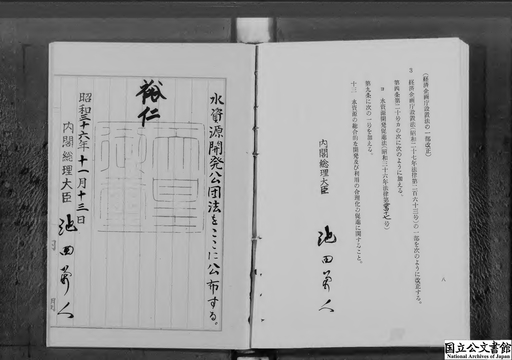 八
(経済企画庁設置法の一部改正)
3 経済企画庁設置法(昭和二十七年法律第二百六十三号)の一部を次のように改正する。
第四条第二十号の次に次のように加える。
水資源開発促進法(昭和三十六年法律第二百十七号)
第九条に次の一号を加える。
十三 水資源の総合的な開発及び利用の合理化の促進に関すること。
内閣総理大臣 池田勇人
水資源開発公団法をここに公布する。
裕仁
天皇御璽
昭和三十六年十一月十三日
内閣總理大臣 池田勇人
国立公文書館
National Archives of Japan